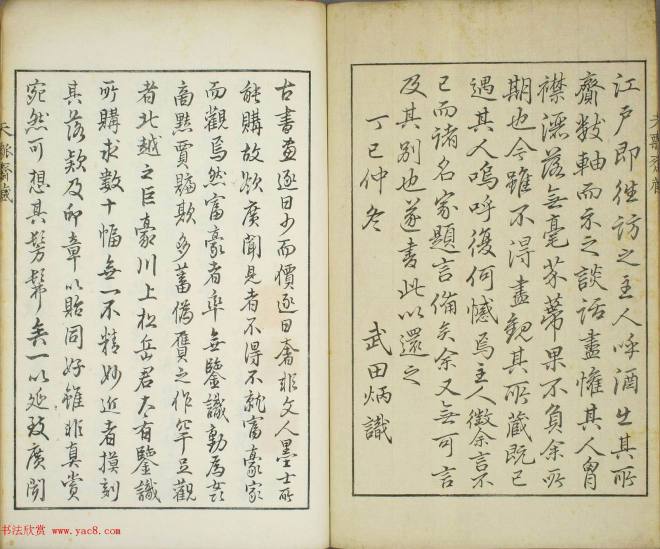 江戶即徃訪之主人呼酒出其所
齎數軸而示之談話盡懽其人胷
襟洒落無毫芥蒂果不負余所
期也今雖不得盡觀其所藏既已
遇其人嗚呼復何憾焉主人徵余言不
已而諸名家題言備矣余又無可言
及其別也遂書此以還之
丁巳仲冬
武田炳識
天
齋藏
古書畫逐日少而價逐日奢非文人墨士所
能購故欲廣聞見者不得不就富豪家
而觀焉然富豪者率無鑒識動爲
商黠賈欺多蓄僞贋之作罕足觀
者北越之巨豪川上松岳君大有鑒識
所購求數十幅無一不精妙近者摸刻
其落欵及印章以貽同好雖非真賞
宛然可想其髣髴矣一以延致廣聞
天
齋藏
书法欣赏 www.yac8.com